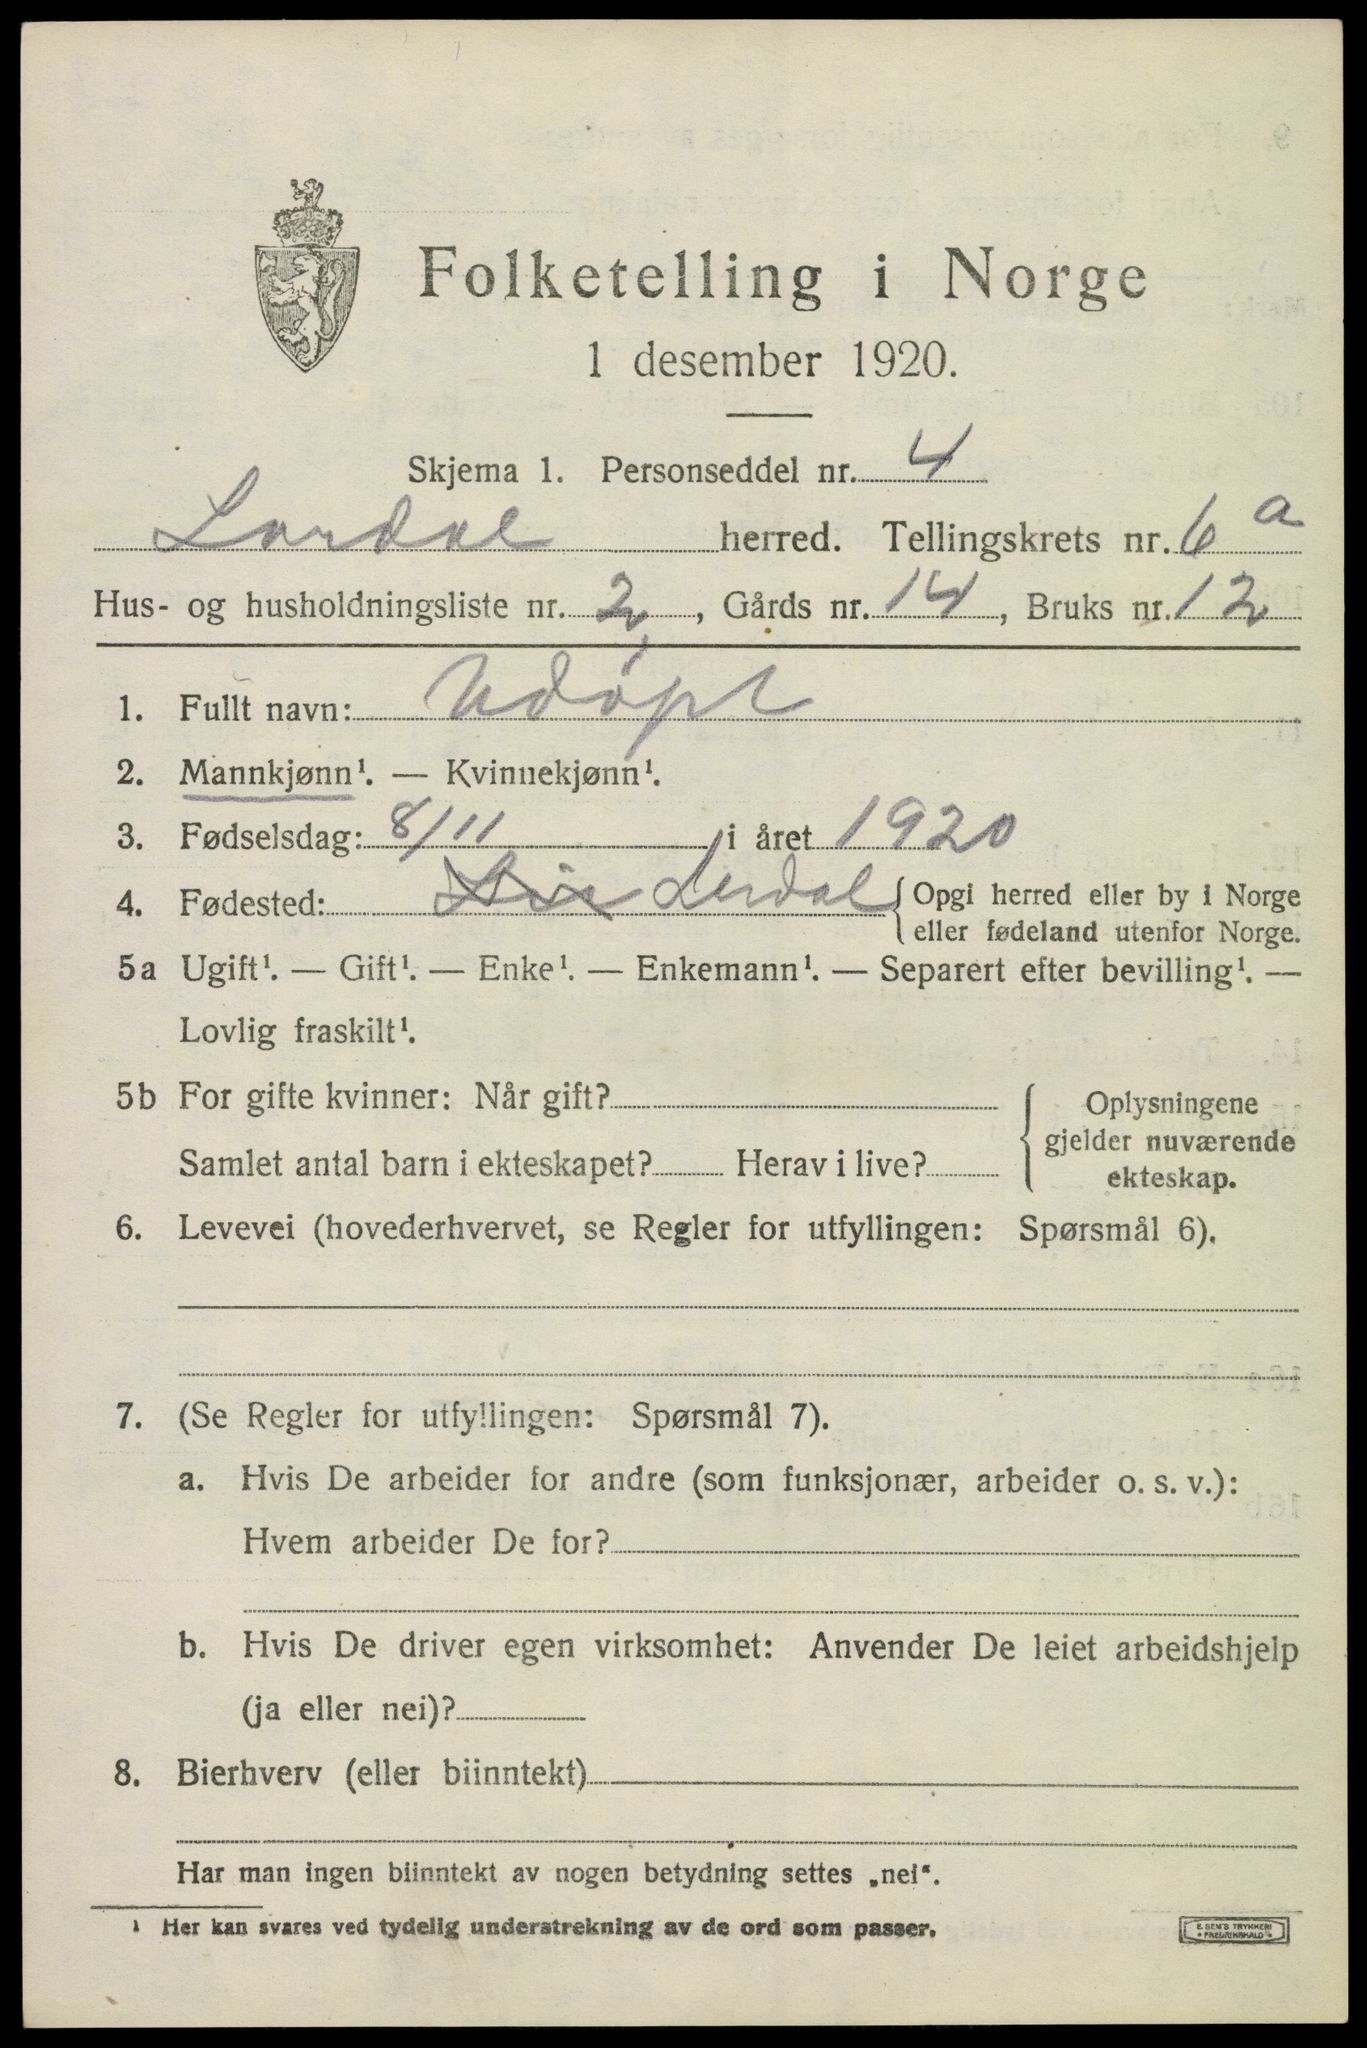 Folketelling i Norge
1 desember 1920.
Skjema 1. Personseddel nr. 4
Lardal herred. Tellingskrets nr. 6 a
Hus- og husholdningsliste nr. 2, Gårds nr. 14, Bruks nr. 12
1. Fullt navn: Udöpt
2. Mannkjønn¹. — Kvinnekjønn¹.
3. Fødselsdag: 8/11 i året 1920
4. Fødested: Lerdal { Opgi herred eller by i Norge
eller fødeland utenfor Norge.
5a Ugift¹. — Gift¹. — Enke¹. — Enkemann¹. — Separert efter bevilling¹. —
Lovlig fraskilt¹.
5b For gifte kvinner: Når gift? { Oplysningene
gjelder nuværende
Samlet antal barn i ekteskapet? Herav i live?
ekteskap.
6. Levevei (hovederhvervet, se Regler for utfyllingen: Spørsmål 6).
7. (Se Regler for utfyllingen: Spørsmål 7).
a. Hvis De arbeider for andre (som funksjonær, arbeider o. s. v.):
Hvem arbeider De for?
b. Hvis De driver egen virksomhet: Anvender De leiet arbeidshjelp
(ja eller nei)?
8. Bierhverv (eller biinntekt)
Har man ingen biinntekt av nogen betydning settes „nei“.
¹ Her kan svares ved tydelig understrekning av de ord som passer.
E. SEM'S TRYKKERI
• FREDRIKSHALD •